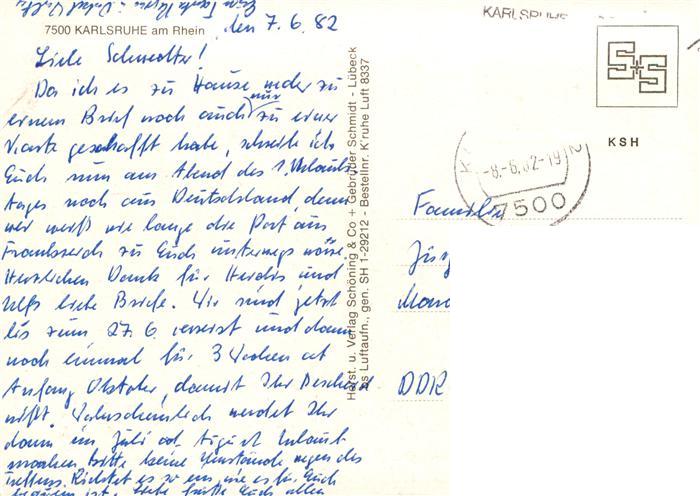 7500 KARLSRUHE am Rhein, den 7.6.82
Liebe Schwedter!
Da ich es zu Hause weder zu
einem Brief noch auch nur zu einer
Karte geschafft habe, schreibe ich
Euch nun am Abend des 1. Urlaubs
tages noch aus Deutschland, denn
wer weiß wie lange die Post aus
Frankreich zu Euch unterwegs wäre.
Herzlichen Dank für Heidis und
Ulfs liebe Briefe. Wir sind jetzt
bis zum 27.6. verreist und dann
noch einmal für 3 Wochen ab
Anfang Oktober, damit Ihr Bescheid
wißt. Wahrscheinlich werdet Ihr
dann im Juli od. August Urlaub
machen. Bitte keine Umstände wegen des
Richtet es so ein, wie es für Euch
ist.
Horst. u. Verlag Schöning & Co + Gebrüder Schmidt - Lübeck
ls Luftaufn., gen. SH 1-29212 - Bestellnr. K'ruhe Luft 8337
KARLSRUHE
SS
KSH
-8.-6.82-19
7500
Familie
Jür
DDR